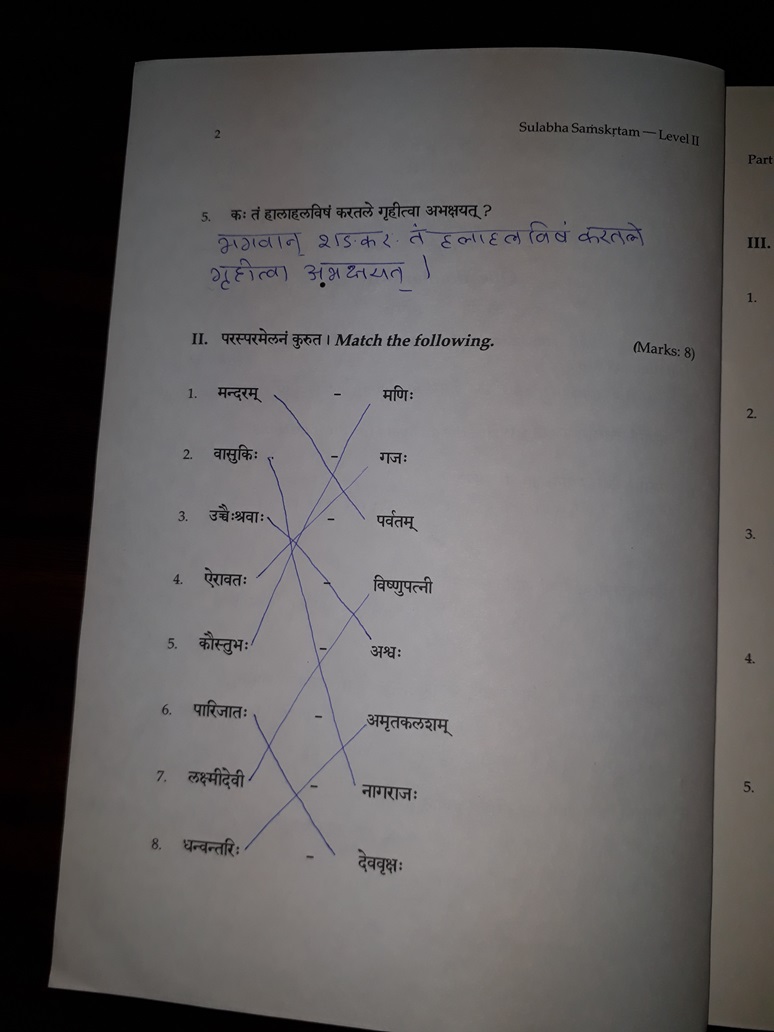 2
Sulabha Saṁskṛtam — Level II
5. कः तं हालाहलविषं करतले गृहीत्वा अभक्षयत् ?
भगवान् शङ्करः तं हलाहलविषं करतले
गृहीत्वा अभक्षयत् ।
II. परस्परमेलनं कुरुत । Match the following.
(Marks: 8)
1. मन्दरम् - मणिः
2. वासुकिः - गजः
3. उच्चैःश्रवाः - पर्वतम्
4. ऐरावतः - विष्णुपत्नी
5. कौस्तुभः - अश्वः
6. पारिजातः - अमृतकलशम्
7. लक्ष्मीदेवी - नागराजः
8. धन्वन्तरिः - देववृक्षः
Part
III.
1.
2.
3.
4.
5.